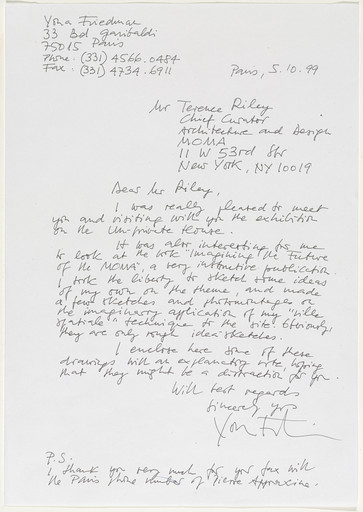 Yona Friedman
33 Bd Garibaldi
75015 Paris
Phone: (331) 4566.0484
Fax: (331) 4734.6911
Paris, 5.10.99
Mr Terence Riley
Chief Curator
Architecture and Design
MOMA
11 W 53rd Str
New York, NY 10019
Dear Mr Riley,
I was really pleased to meet
you and visiting with you the exhibition
on the Un-private House.
It was also interesting for me
to look at the book "Imagining the Future
of the MOMA", a very instructive publication.
I took the liberty to sketch some ideas
of my own on the theme, and made
a few sketches and photomontages on
the imaginary application of my "ville
spatiale" technique to the site. Obviously,
they are only rough idea-sketches.
I enclose here some of these
drawings with an explanatory note, hoping
that they might be a distraction for you.
With best regards
Sincerely yrs
P.S.
I thank you very much for your fax with
the Paris phone number of Pierre